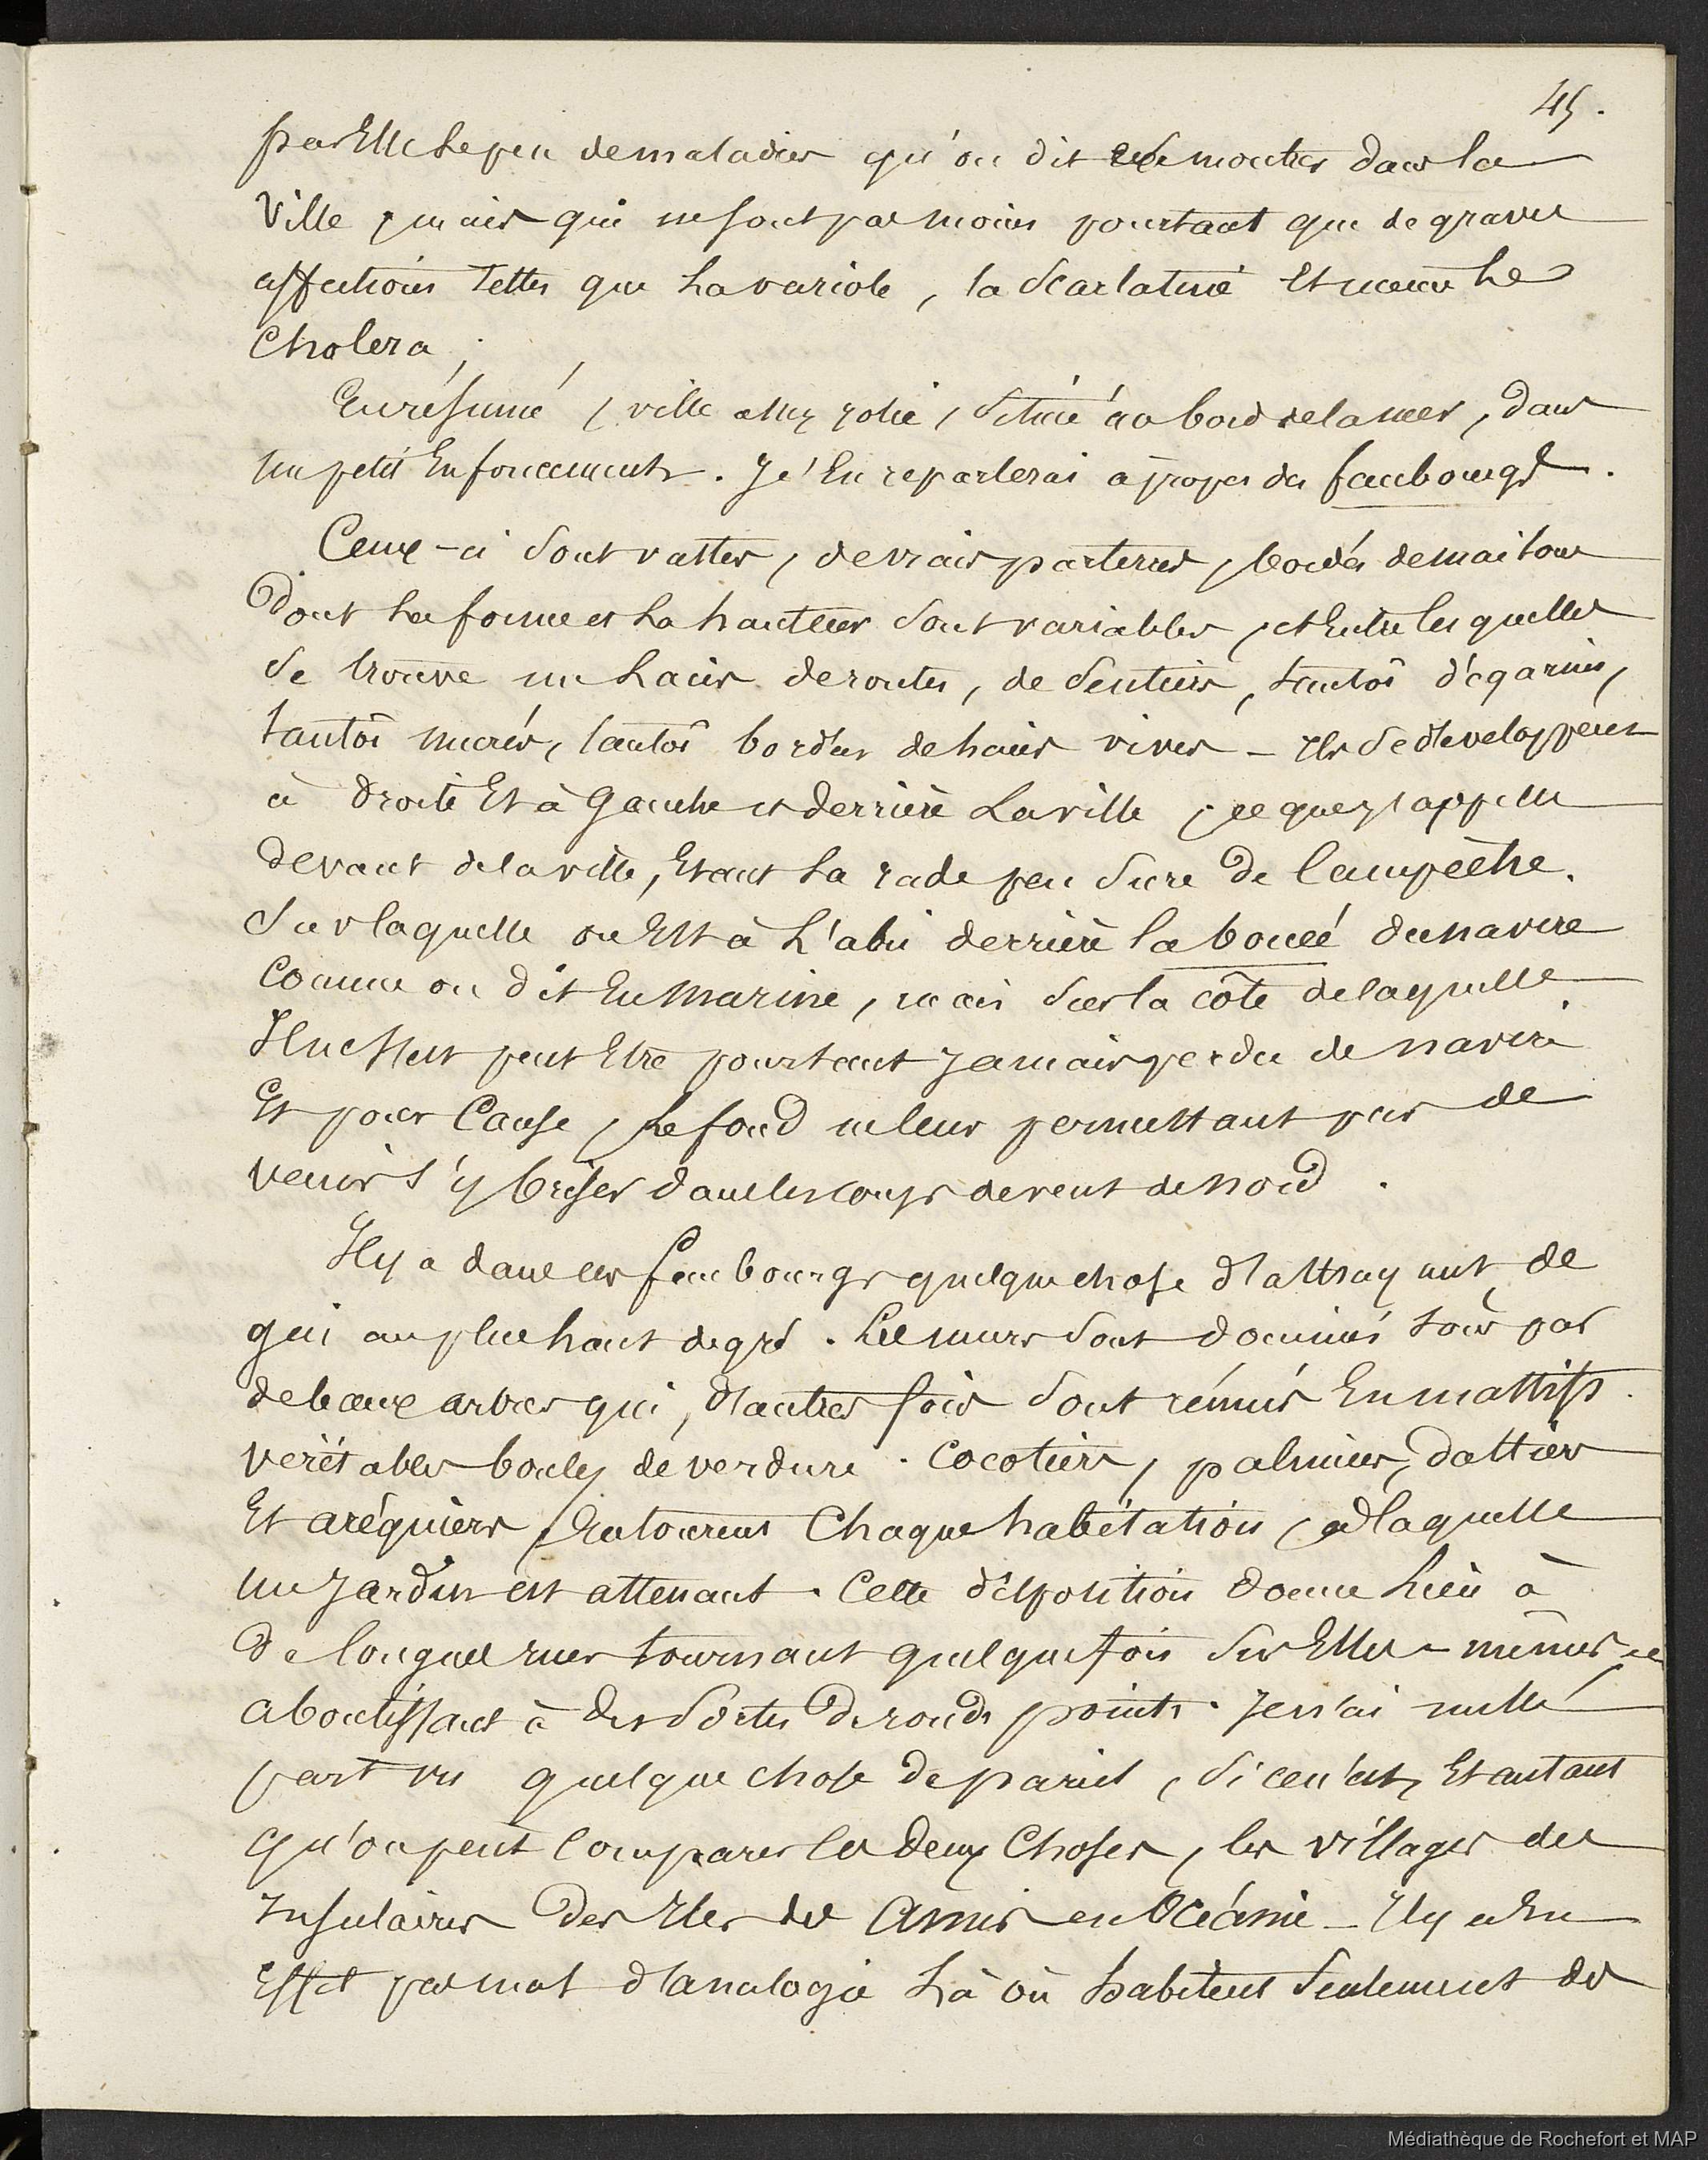 45.
par Elle le peu de maladies qu'on dit se montrer dans la
Ville, mais qui ne sont pas moins pourtant que de graves
affections telles que la variole, la Scarlatine Et même le
Cholera;
En résumé, ville assez jolie, Située au bord de la mer, dans
un petit Enfoncement. Je En reparlerai à propos des faubourgs.
Ceux-ci Sont vastes, de vrais parterres, bordés de maisons
Dont la forme et la hauteur Sont variables, et Entre lesquelles
Se trouve un lacis de routes, de Sentiers, tantôt dégarnis,
tantôt murés, tantôt bordés de haies vives - Ils Se développent
à Droite Et à Gauche et derrière La ville, ce que j'appelle
devant de la ville, Etant La rade peu Sure De Campêche.
Sur laquelle on Est à L'abri derrière la bouée du navire
Comme on dit En Marine, mais Sur la côte de laquelle
Il ne S'est peut Etre pourtant Jamais perdu de navire
Et pour Cause, Le fond ne leur permettant pas de
venir s'y briser dans les coups de vent de nord.
Il y a dans ces faubourgs quelque chose d'attrayant, de
gai au plus haut degré. Les murs Sont dominés tous par
de beaux arbres qui, d'autres fois Sont réunis En massifs.
véritables de verdure. Cocotiers, palmiers, Dattiers
Et aréquiers, Entourent Chaque habitation, à laquelle
un Jardin est attenant. Cette disposition donne Lieu à
De longues rues tournant quelque fois Sur Elles-mêmes et
aboutissant à des Sortes De ronds points. Je n'ai nulle
part vu quelque chose De pareil, Si ce n'est, Et autant
qu'on peut Comparer les deux Choses, les villages des
Insulaires Des Iles des Amis en Océanie - Il y a En
Effet pas mal d'analogie Là où habitent Seulement des
Médiathèque de Rochefort et MAP